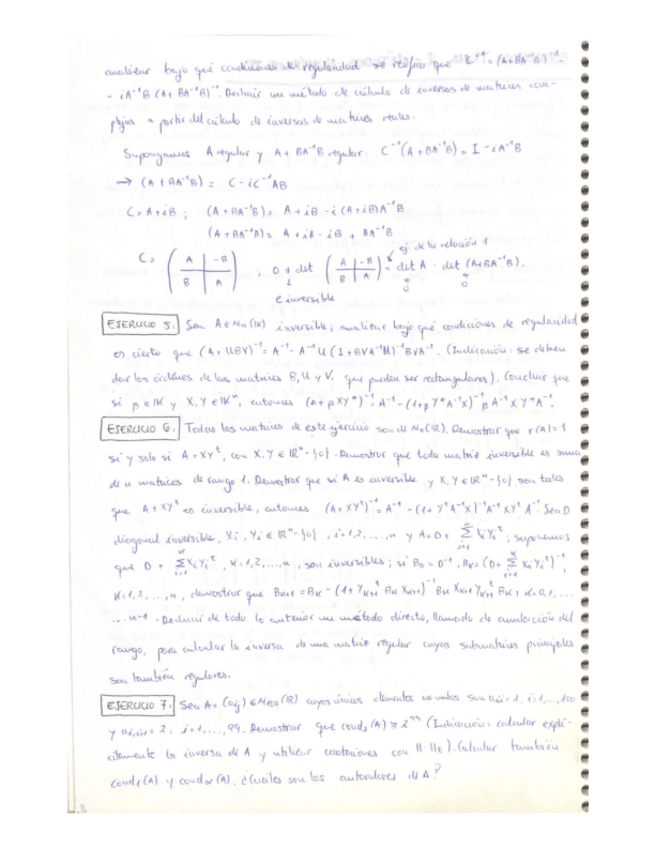 analizar bajo qué condiciones de regularidad se verifica que C⁻¹ = (A+BA⁻¹B)⁻¹ -
- iA⁻¹B (A+ BA⁻¹B)⁻¹. Deducir un método de cálculo de inversas de matrices com-
plejas a partir del cálculo de inversas de matrices reales.
Supongamos A regular y A+ BA⁻¹B regular. C⁻¹(A+BA⁻¹B) = I - iA⁻¹B
→ (A+BA⁻¹B) = C - iCA⁻¹B
C = A+iB ; (A+BA⁻¹B) = A+iB - i(A+iB)A⁻¹B
(A+BA⁻¹B) = A+iB - iB + BA⁻¹B
C = ( A | -B ; 0 ≠ det ( A | -B = det A · det (A+BA⁻¹B).
B | A ) B | A )
ej. de la relación 1
≠ 0 ≠ 0
e inversible
EJERCICIO 5: Sea A∈Mn(K) inversible; analizar bajo qué condiciones de regularidad
es cierto que (A+UBV)⁻¹ = A⁻¹ - A⁻¹U(I+BVA⁻¹U)⁻¹BVA⁻¹. (Indicación: se deben
dar los órdenes de las matrices B, U y V, que pueden ser rectangulares). Concluir que
si β∈K y X,Y∈Kⁿ, entonces (A+βXY*)⁻¹ = A⁻¹ - (1+βY*A⁻¹X)⁻¹βA⁻¹XY*A⁻¹.
EJERCICIO 6: Todas las matrices de este ejercicio son de Mn(R). Demostrar que r(A)=1
si y solo si A = XYᵗ, con X,Y∈Rⁿ-{0}. Demostrar que toda matriz inversible es suma
de n matrices de rango 1. Demostrar que si A es inversible y X,Y∈Rⁿ-{0} son tales
que A+XYᵗ es inversible, entonces (A+XYᵗ)⁻¹ = A⁻¹ - (1+YᵗA⁻¹X)⁻¹A⁻¹XYᵗA⁻¹. Sea D
diagonal inversible, Xi, Yi∈Rⁿ-{0}, i=1,2,...,n y A = D+ Σ XiYiᵗ ; suponemos
que D + Σ XiYiᵗ, k=1,2,...,n, son inversibles; si B0 = D⁻¹, Bk = (D+ Σ XiYiᵗ)⁻¹,
k=1,2,...,n, demostrar que Bk+1 = Bk - (1+Yk+1ᵗ Bk Xk+1)⁻¹ Bk Xk+1 Yk+1ᵗ Bk, k=0,1,...
...n-1. Deducir de todo lo anterior un método directo, llamado de acumulación del
rango, para calcular la inversa de una matriz regular cuyas submatrices principales
son también regulares.
EJERCICIO 7: Sea A = (aij)∈M100(R) cuyos únicos elementos no nulos son aii=1, i=1,...,100
y ai,i+1 = 2, i=1,...,99. Demostrar que cond₂(A) ≥ 2⁹⁹ (Indicación: calcular explí-
citamente la inversa de A y utilizar acotaciones con ||·||E). Calcular también
cond₁(A) y cond∞(A). ¿Cuáles son los autovalores de A?